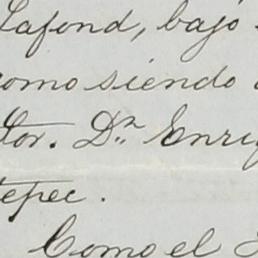 Lafond, bajo
como siendo
tor. Dn Enri
tepec.
Como el